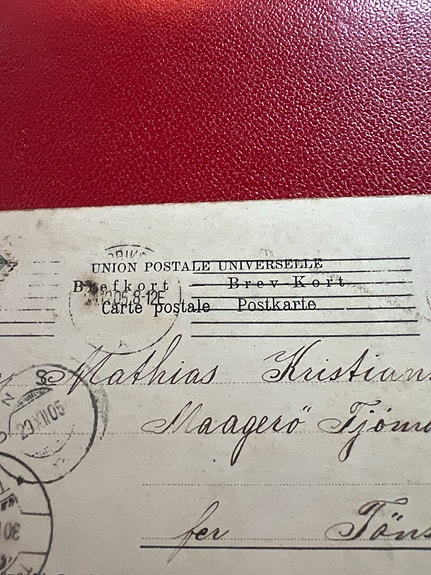 UNION POSTALE UNIVERSELLE
Brefkort Brev-Kort
Carte postale Postkarte
05.8-12E
Mathias Kristian
Maagerö Tjöm
29 XII 05
per Töns
30